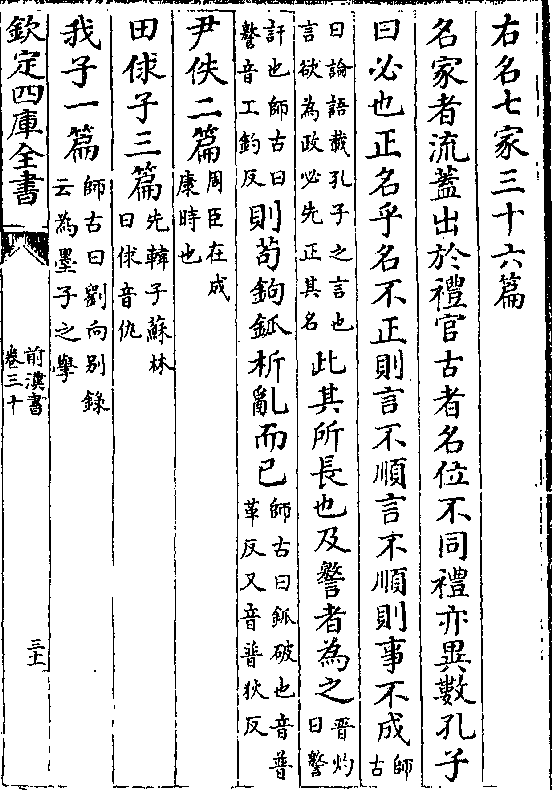 右名七家三十六篇
名家者流蓋出於禮官古者名位不同禮亦異數孔子
曰必也正名乎名不正則言不順言不順則事不成師古
曰論語載孔子之言也言欲為政必先正其名此其所長也及警者為之晋灼曰警
訐也師古曰警音工釣反則苟鉤鈲析亂而已師古曰鈲破也音普革反又音普狄反
尹佚二篇周臣在成康時也
田俅子三篇先韓子蘇林曰俅音仇
我子一篇師古曰劉向别錄云為墨子之學
欽定四庫全書
前漢書
卷三十
三十